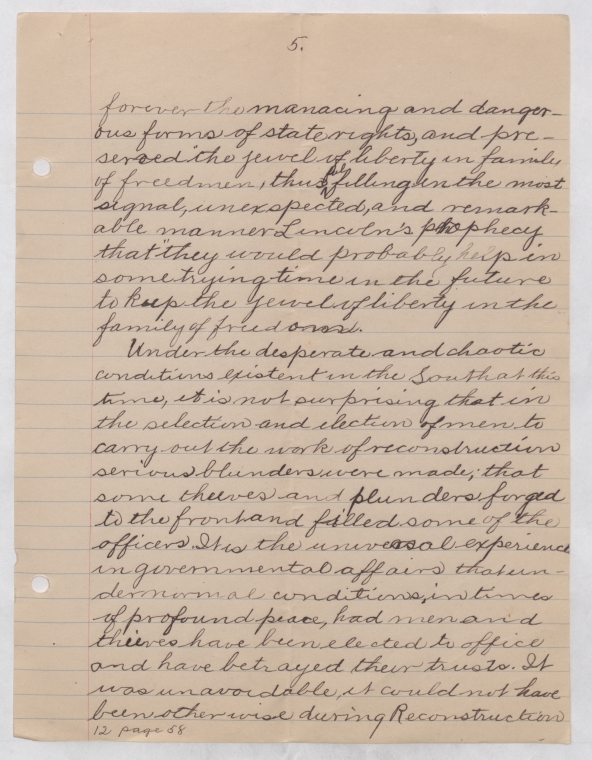 5.
forever the manacing and danger-
ous forms of state rights, and pre-
served the jewel of liberty in family
of freedmen, thus fulfilling in the most
signal, unexspected, and remark-
able manner Lincoln's prophecy
that "they would probably help in
some trying time in the future
to keep the jewel of liberty in the
family of freedoms.
Under the desperate and chaotic
conditions existent in the South at this
time, it is not surprising that in
the selection and election of men to
carry out the work of reconstruction
serious blunders were made; that
some theeves and plunders forged
to the front and filled some of the
officers. It is the universal experience
in governmental affairs that un-
der normal conditions, in times
of profound peace, had men and
thieves have been elected to office
and have betrayed their trusts. It
was unavoidable, it could not have
been otherwise during Reconstruction
12 page 58